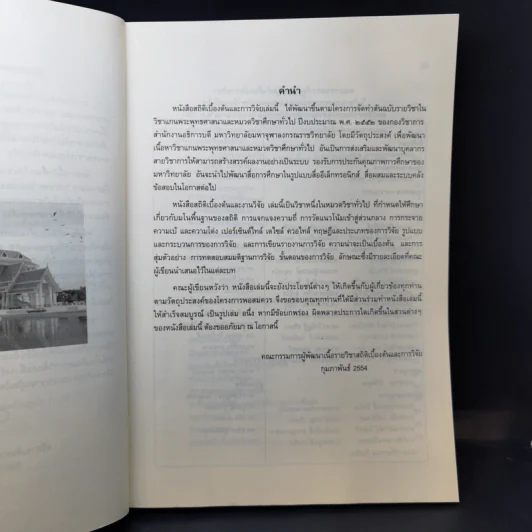 คำนำ
หนังสือสถิติเบื้องต้นและการวิจัยเล่มนี้ ได้พัฒนาขึ้นตามโครงการจัดทำต้นฉบับรายวิชาใน
วิชาแกนพระพุทธศาสนาและหมวดวิชาศึกษาทั่วไป ปีงบประมาณ พ.ศ. ๒๕๕๒ ของกองวิชาการ
สำนักงานอธิการบดี มหาวิทยาลัยมหาจุฬาลงกรณราชวิทยาลัย โดยมีวัตถุประสงค์ เพื่อพัฒนา
เนื้อหาวิชาแกนพระพุทธศาสนาและหมวดวิชาศึกษาทั่วไป อันเป็นการส่งเสริมและพัฒนาบุคลากร
สายวิชาการให้สามารถสร้างสรรค์ผลงานอย่างเป็นระบบ รองรับการประกันคุณภาพการศึกษาของ
มหาวิทยาลัย อันจะนำไปพัฒนาสื่อการศึกษาในรูปแบบสื่ออิเล็กทรอนิกส์ สื่อผสมและระบบคลัง
ข้อสอบในโอกาสต่อไป
หนังสือสถิติเบื้องต้นและงานวิจัย เล่มนี้เป็นวิชาหนึ่งในหมวดวิชาทั่วไป ที่กำหนดให้ศึกษา
เกี่ยวกับมโนพื้นฐานของสถิติ การแจกแจงความถี่ การวัดแนวโน้มเข้าสู่ส่วนกลาง การกระจาย
ความเบ้ และความโด่ง เปอร์เซ็นต์ไทล์ เดไซล์ ควอไทล์ ทฤษฎีและประเภทของการวิจัย รูปแบบ
และกระบวนการของการวิจัย และการเขียนรายงานการวิจัย ความน่าจะเป็นเบื้องต้น และการ
สุ่มตัวอย่าง การทดสอบสมมติฐานการวิจัย ขั้นตอนของการวิจัย ลักษณะซึ่งมีรายละเอียดที่คณะ
ผู้เขียนนำเสนอไว้ในแต่ละบท
คณะผู้เขียนหวังว่า หนังสือเล่มนี้จะยังประโยชน์ต่างๆ ให้เกิดขึ้นกับผู้เกี่ยวข้องทุกท่าน
ตามวัตถุประสงค์ของโครงการพอสมควร จึงขอขอบคุณทุกท่านที่ได้มีส่วนร่วมทำหนังสือเล่มนี้
ให้สำเร็จสมบูรณ์ เป็นรูปเล่ม อนึ่ง หากมีข้อบกพร่อง ผิดพลาดประการใดเกิดขึ้นในส่วนต่างๆ
ของหนังสือเล่มนี้ ต้องขออภัยมา ณ โอกาสนี้
คณะกรรมการผู้พัฒนาเนื้อรายวิชาสถิติเบื้องต้นและการวิจัย
กุมภาพันธ์ 2554